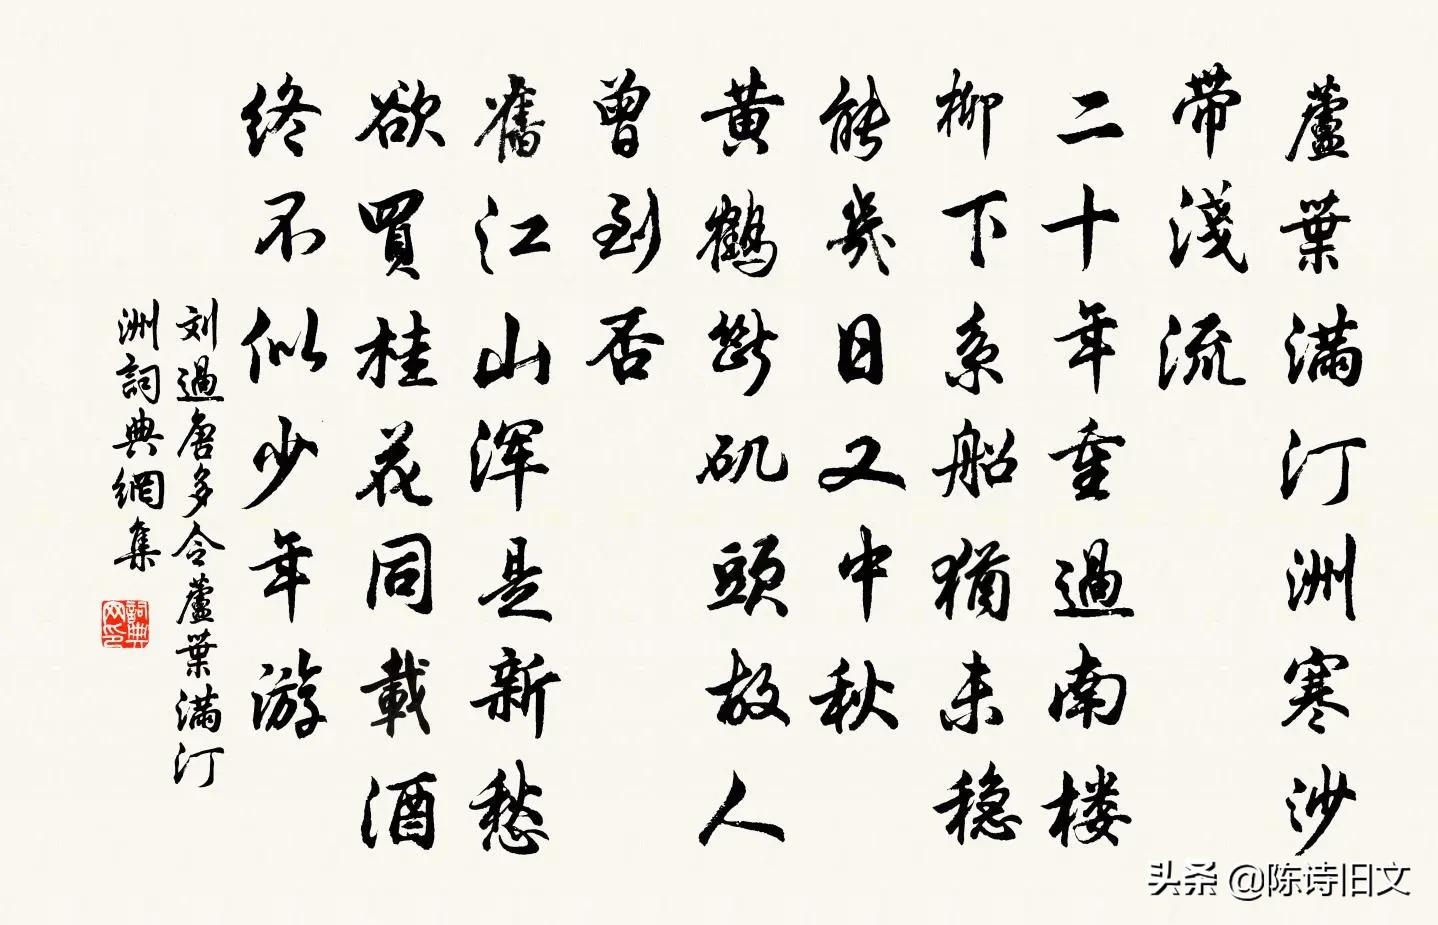 蘆葉满汀洲寒沙
带淺流
二十年重過南楼
柳下系船猶未稳
能幾日又中秋
黄鶴斷矶頭故人
曾到否
舊江山浑是新愁
欲買桂花同載酒
终不似少年游
刘過唐多令蘆葉满汀
洲詞典網集
詞典
网印
头条 @陈诗旧文